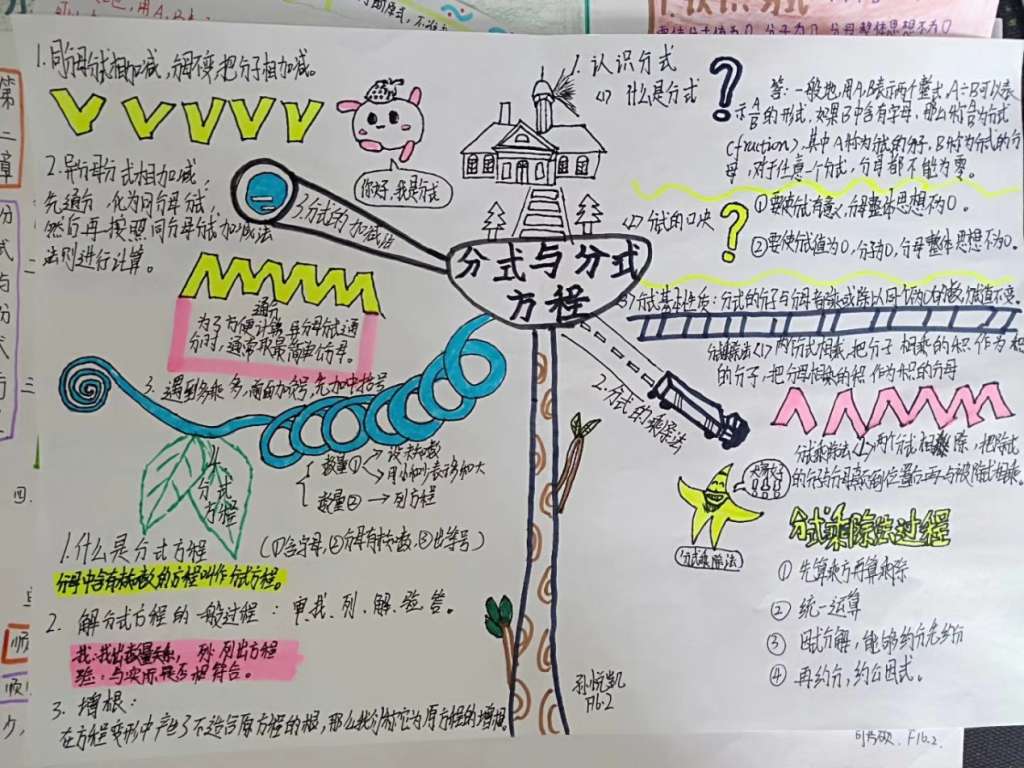 分式与分式
方程
1. 认识分式
<1> 什么是分式
答:一般地,用A、B表示两个整式,A÷B可以表
示A/B的形式,如果B中含有字母,那么称A/B为分式
(fraction),其中A称为分式的分子,B称为分式的分
母,对于任意一个分式,分母都不能为零。
<2> 分式的口诀
①要使分式有意义,分母整体思想不为0。
②要使分式值为0,分子为0,分母整体思想不为0。
<3>分式基本性质:分式的分子与分母
2.分式的乘除法
分式乘除法<1>两个分式相乘,把分子相乘的积作为积
的分子,把分母相乘的积作为积的分母
分式乘除法<2>两个分式相除,把除式
的分子分母颠倒位置后再与被除式相乘。
大家好
分式乘除法
分式乘除法过程
① 先算乘方再算乘除
② 统一运算
③ 因式分解,能够约分先约分
④ 再约分,约公因式。
3.分式的加减法
你好,我是分式
1.同分母分式相加减,分母不变,把分子相加减。
2.异分母分式相加减,
先通分,化为同分母分式,
然后再按照同分母分式加减法
法则进行计算。
通分
为了方便计算,异分母分式通
分时,通常取最简单公分母。
3.遇到多乘多,前面加减号,先加中括号
4.
分式
方程
数量① 设未知数
数量② → 列方程
1.什么是分式方程 (①含字母,②分母有未知数,③出等号)
分母中含有未知数的方程叫作分式方程。
2. 解分式方程的一般过程:审、找、列、解、验、答。
找:找出数量关系, 列:列出方程
验:与实际是否相符合。
3. 增根:
在方程变形中产生了不适合原方程的根,那么我们称它为原方程的增根。
孙悦凯
F16.2
第
二
章
F16.2